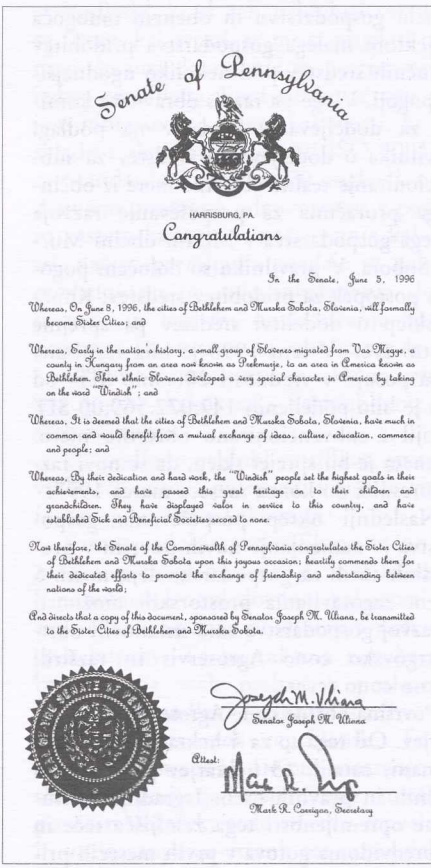 Senate of Pennsylvania
HARRISBURG, PA.
Congratulations
In the Senate, June 5, 1996
Whereas, On June 8, 1996, the cities of Bethlehem and Murska Sobota, Slovenia, will formally
become Sister Cities; and
Whereas, Early in the nation's history, a small group of Slovenes migrated from Vas Megye, a
county in Hungary from an area now known as Prekmurje, to an area in America known as
Bethlehem. These ethnic Slovenes developed a very special character in America by taking
on the word "Windish"; and
Whereas, It is deemed that the cities of Bethlehem and Murska Sobota, Slovenia, have much in
common and would benefit from a mutual exchange of ideas, culture, education, commerce
and people; and
Whereas, By their dedication and hard work, the "Windish" people set the highest goals in their
achievements, and have passed this great heritage on to their children and
grandchildren. They have displayed valor in service to this country, and have
established Sick and Beneficial Societies second to none;
Now therefore, the Senate of the Commonwealth of Pennsylvania congratulates the Sister Cities
of Bethlehem and Murska Sobota upon this joyous occasion; heartily commends them for
their dedicated efforts to promote the exchange of friendship and understanding between
nations of the world;
And directs that a copy of this document, sponsored by Senator Joseph M. Uliana, be transmitted
to the Sister Cities of Bethlehem and Murska Sobota.
Joseph M. Uliana
Senator Joseph M. Uliana
Attest:
Mark R. Corrigan, Secretary
SEAL OF THE SENATE OF PENNSYLVANIA